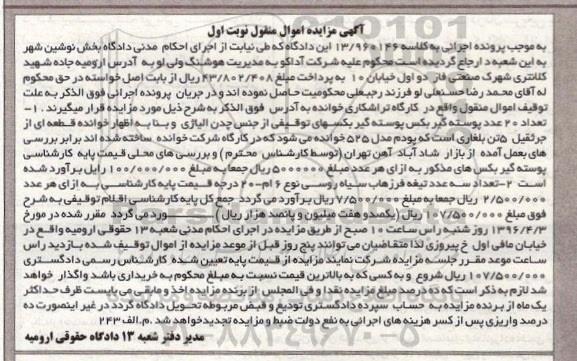 آگهی مزایده اموال منقول نوبت اول
به موجب پرونده اجرائی به کلاسه ۱۳/۹۶۰۱۴۶ این دادگاه که طی نیابت از اجرای احکام مدنی دادگاه بخش نوشین شهر
به این شعبه در ارجاع گردیده است محکوم علیه شرکت آداکو به مدیریت هوشنگ ولی لو به آدرس ارومیه جاده شهید
کلانتری شهرک صنعتی فاز دو اول خیابان ۱۰ به پرداخت مبلغ ۴۳/۸۰۲/۴۰۸ ریال از بابت اصل خواسته در حق محکوم
له آقای محمد رضا حسنعلی لو فرزند رجبعلی محکومیت حاصل نموده اند و در جریان پرونده اجرائی فوق الذکر به علت
توقیف اموال منقول واقع در کارگاه تراشکاری خوانده به آدرس فوق الذکر به شرح ذیل مورد مزایده قرار میگیرند . ۱-
تعداد ۲۰ عدد پوسته گیر بکس پوسته گیر بکسهای توقیفی از جنس چدن الیاژی و بنا به اظهار خوانده قطعه ای از
جرثقیل ۵تن بلغاری است که پودم مدل ۵۲۵ خوانده می شود که در کارگاه شرکت خوانده ساخته شده اند برابر بررسی
های بعمل آمده از بازار شاد آباد آهن تهران (توسط کارشناس محترم) و بررسی های محلی قیمت پایه کارشناسی
پوسته گیر بکس های مذکور به ازای هر عدد مبلغ ۵۰۰۰۰۰۰ ریال جمعا به مبلغ ۱۰۰/۰۰۰/۰۰۰ رایل برآورد شده
است ۲-تعداد سه عدد تیغه فرزهاب سیاه روسی نوع ۶ ام-۲۰ درجه قیمت پایه کارشناسی به ازای هر عدد
۲/۵۰۰/۰۰۰ ریال جمعا به مبلغ ۷/۵۰۰/۰۰۰ ریال برآورد می گردد جمع کل پایه کارشناسی اقلام توقیفی به شرح
فوق مبلغ ۱۰۷/۵۰۰/۰۰۰ ریال (یکصد و هفت میلیون و پانصد هزار ریال) ورد می گردد مقرر شده در مورخ
۱۳۹۶/۴/۳ روز شنبه راس ساعت ۱۰ صبح از طریق مزایده در اجرای احکام مدنی شعبه ۱۳ حقوقی ارومیه واقع در
خیابان مافی اول خ پیروزی لذا متقاضیان می توانند پنج روز قبل از موعد مزایده از اموال توقیف شده بازدید راس
ساعت موعد مقرر جلسه مزایده شرکت نمایند مزایده از قیمت پایه تعیین شده کارشناس رسمی دادگستری
۱۰۷/۵۰۰/۰۰۰ ریال شروع و به کسی که به بالاترین قیمت نسبت به مبلغ محکوم به خریداری باشد واگذار خواهد
شد لازم به ذکر است که ده درصد مبلغ مزایده نقدا و فی المجلس از برنده مزایده اخذ و مابقی می بایست ظرف حداکثر
یک ماه از برنده مزایده به حساب سپرده دادگستری تودیع و قبض مربوطه تحویل دادگاه گردد در غیر اینصورت ده
درصد واریزی پس از کسر هزینه های اجرائی به نفع دولت ضبط و مزایده تجدید خواهد شد .م.الف ۲۴۳
مدیر دفتر شعبه ۱۳ دادگاه حقوقی ارومیه